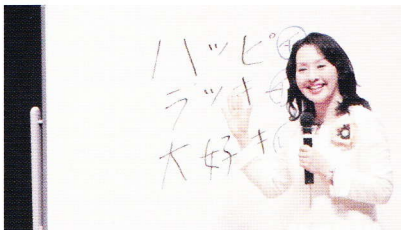 ハッピ
ラッキ
大好き